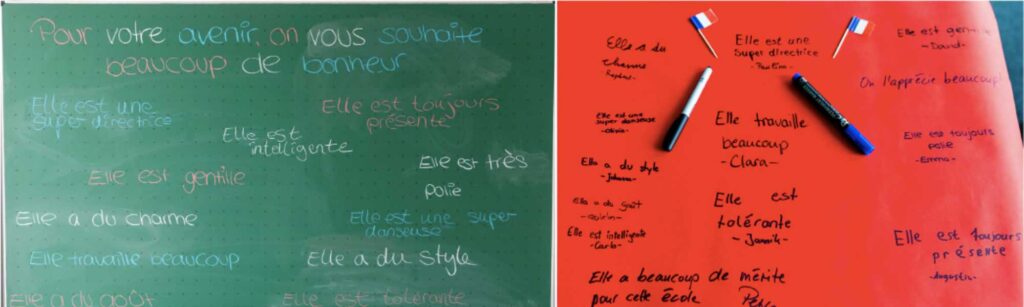 Pour votre avenir, on vous souhaite
beaucoup de bonheur
Elle est une
super directrice
Elle est toujours
présente
Elle est
intelligente
Elle est très
polie
Elle est gentille
Elle a du charme
Elle est une super
danseuse
Elle travaille beaucoup
Elle a du style
Elle a du goût
Elle est tolérante
Elle a du
charme
Elle est une
super directrice
-Paulina-
Elle est gentille
-David-
On l'apprécie beaucoup!
Elle est une
super danseuse
-Olivia-
Elle travaille
beaucoup
-Clara-
Elle est toujours
polie
-Emma-
Elle a du style
-Johanna-
Elle a du goût
Elle est intelligente
-Carla-
Elle est
tolérante
-Jannik-
Elle est toujours
présente
-Augustin-
Elle a beaucoup de mérite
pour cette école